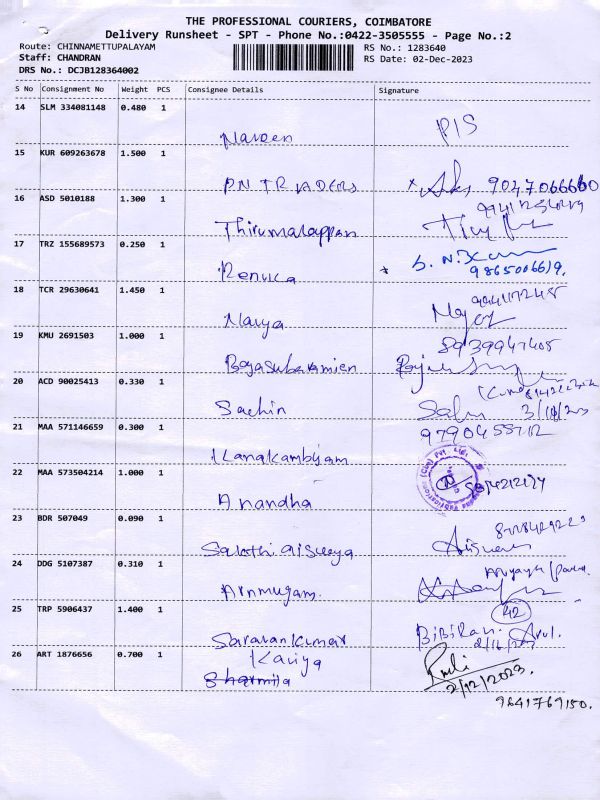 THE PROFESSIONAL COURIERS, COIMBATORE
Delivery Runsheet - SPT - Phone No.:0422-3505555 - Page No.:2
Route: CHINNAMETTUPALAYAM RS No.: 1283640
Staff: CHANDRAN RS Date: 02-Dec-2023
DRS No.: DCJB128364002
S No Consignment No Weight PCS Consignee Details Signature
14 SLM 334081148 0.480 1
Naveen PIS
15 KUR 609263678 1.500 1
PN TRADERS 9047066660
16 ASD 5010188 1.300 1
Thirumalappan
17 TRZ 155689573 0.250 1
Renuka 9865006619.
18 TCR 29630641 1.450 1
Navya
19 KMU 2691503 1.000 1 8939947405
20 ACD 90025413 0.330 1
Sachin
21 MAA 571146659 0.300 1
Kanakambjam
22 MAA 573504214 1.000 1
Anandha
23 BDR 507049 0.090 1
Sakthi aiswrya
24 DDG 5107387 0.310 1
Arumugam.
25 TRP 5906437 1.400 1 42
Saravankumar
26 ART 1876656 0.700 1 Kaviya
Sharmila 2/12/2023.
9641769150.